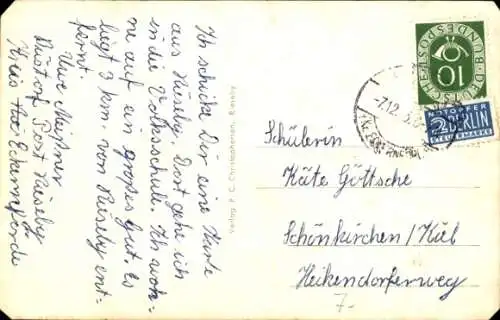 Ich schicke Dir eine Karte
aus Rieseby. Dort gehe ich
in die Volksschule. Ich woh-
ne auf ein großes Gut. Es
liegt 3 km. von Rieseby ent-
fernt.
Uwe Meißner
Büstorf Post Rieseby
Kreis Eckernförde
Verlag P. C. Christophersen, Rieseby
DEUTSCHE BUNDESPOST
10
NOTOPFER
2 BERLIN
STEUERMARKE
-7.12.
Schülerin
Käte Göttsche
Schönkirchen/Kiel
Heikendorferweg
7.